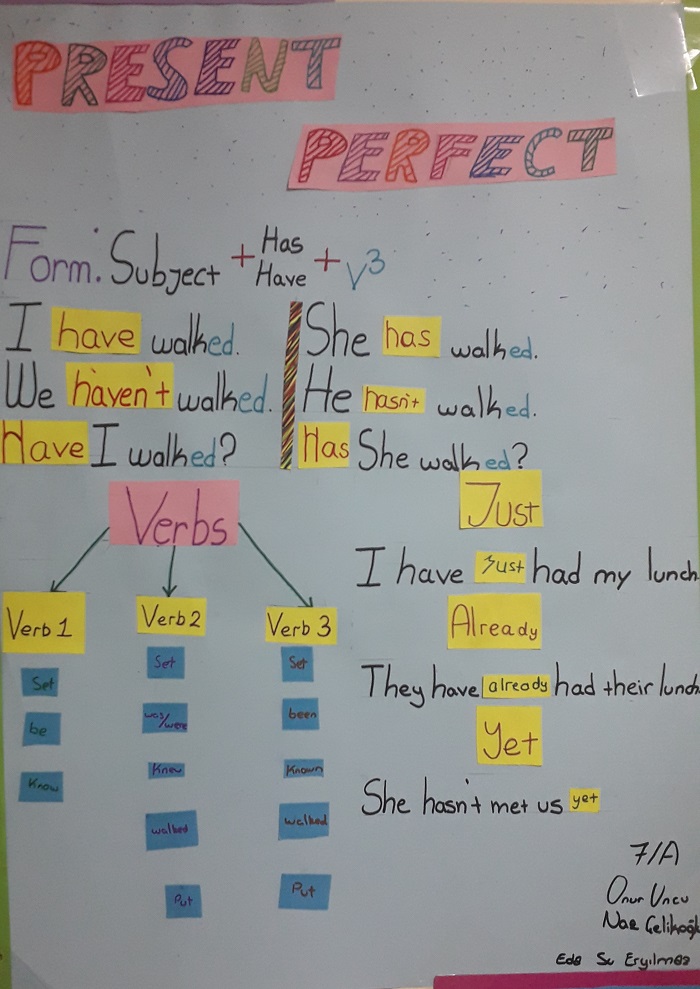 PRESENT
PERFECT
Form: Subject + Has Have + V3
I have walked.
We haven't walked.
Have I walked?
She has walked.
He hasn't walked.
Has She walked?
Verbs
Verb 1
Set
be
Know
Verb 2
Set
was/were
Knew
walked
Put
Verb 3
Set
been
Known
walked
Put
Just
I have Just had my lunch
Already
They have already had their lunch
Yet
She hasn't met us yet
7/A
Onur Uncu
Eryılmaz